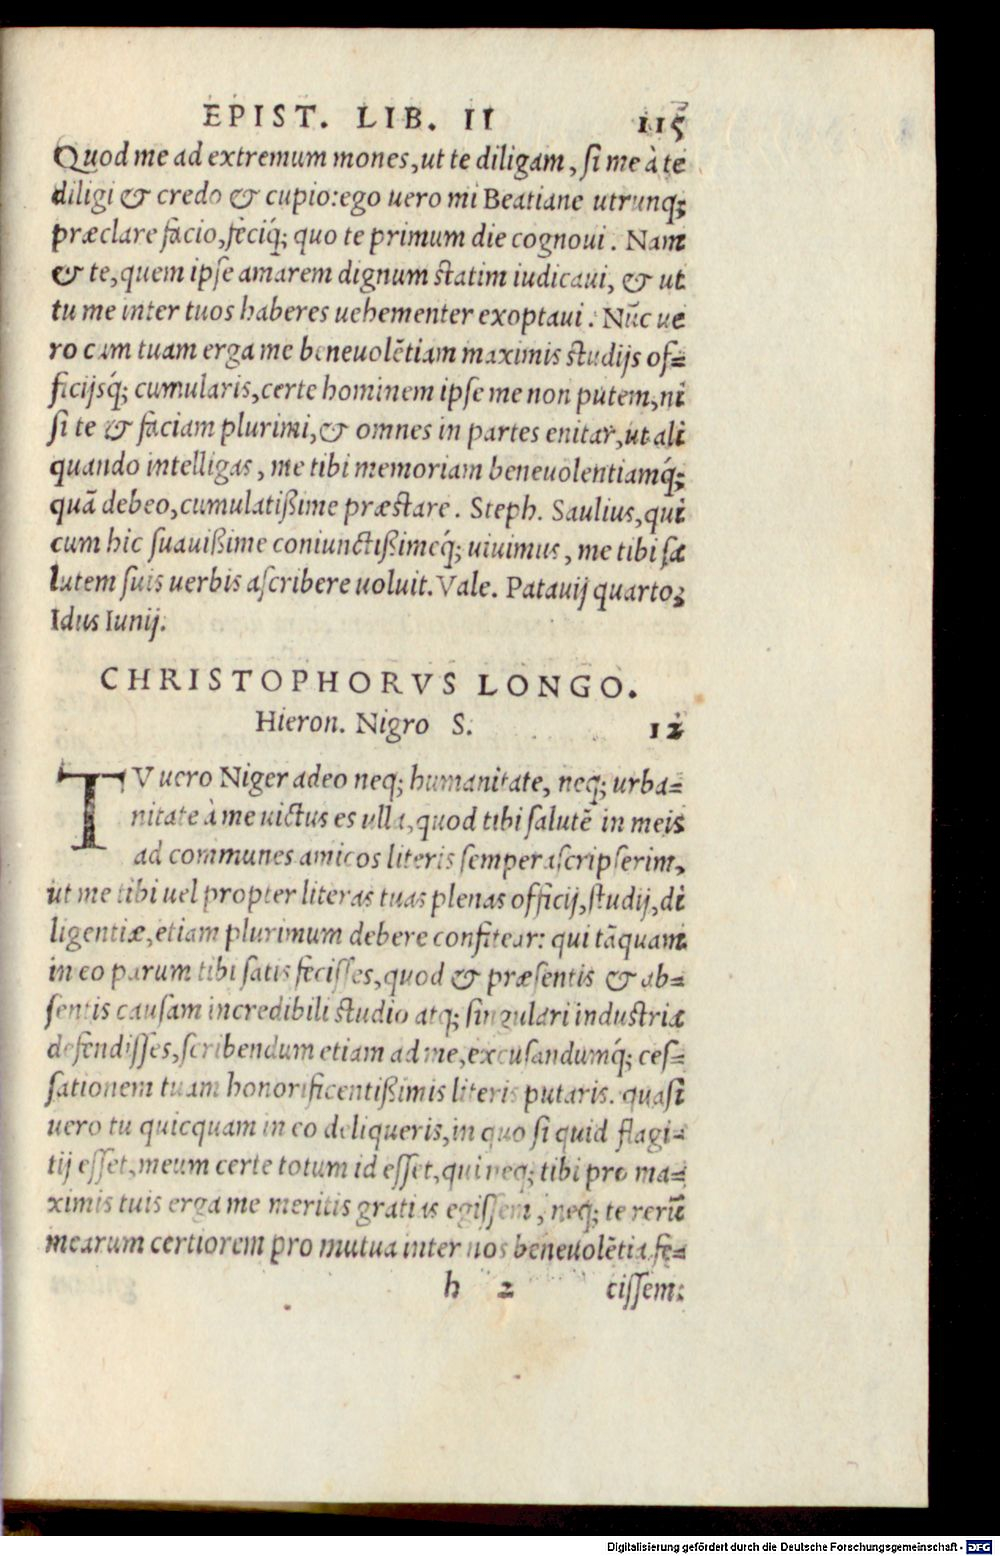 EPIST. LIB. II 115
Quod me ad extremum mones, ut te diligam, si me à te
diligi & credo & cupio: ego uero mi Beatiane utrunq;
præclare facio, feciq́; quo te primum die cognoui. Nam
& te, quem ipse amarem dignum statim iudicaui, & ut
tu me inter tuos haberes uehementer exoptaui. Nūc ue
ro cum tuam erga me beneuolētiam maximis studijs of=
ficijsq́; cumularis, certe hominem ipse me non putem, ni
si te & faciam plurimi, & omnes in partes enitar, ut ali
quando intelligas, me tibi memoriam beneuolentiamq́;
quā debeo, cumulatißime præstare. Steph. Saulius, qui
cum hic suauißime coniunctißimeq́; uiuimus, me tibi sa
lutem suis uerbis ascribere uoluit. Vale. Patauij quarto,
Idus Iunij.
CHRISTOPHORVS LONGO.
Hieron. Nigro S. 12
TV uero Niger adeo neq; humanitate, neq; urba=
nitate à me uictus es ulla, quod tibi salutē in meis
ad communes amicos literis semper ascripserim,
ut me tibi uel propter literas tuas plenas officij, studij, di
ligentiæ, etiam plurimum debere confitear: qui tāquam
in eo parum tibi satis fecisses, quod & præsentis & ab=
sentis causam incredibili studio atq; singulari industria
defendisses, scribendum etiam ad me, excusandumq́; ces=
sationem tuam honorificentißimis literis putaris. quasi
uero tu quicquam in eo deliqueris, in quo si quid flagi=
tij esset, meum certe totum id esset, qui neq; tibi pro ma=
ximis tuis erga me meritis gratias egissem, neq; te rerū
mearum certiorem pro mutua inter nos beneuolētia fe=
h 2 cissem:
Digitalisierung gefördert durch die Deutsche Forschungsgemeinschaft - DFG